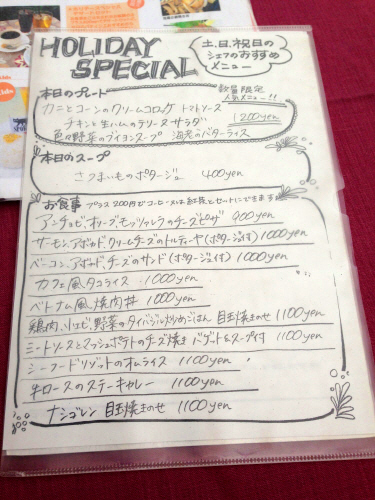 HOLIDAY
SPECIAL
土、日、祝日の
シェフのおすすめ
メニュー
本日のプレート
数量限定
人気メニュー!!
カニとコーンのクリームコロッケ トマトソース
チキンと生ハムのテリーヌサラダ
1200yen
色々野菜のブイヨンスープ 海老のバターライス
本日のスープ
さつまいものポタージュ 400yen
お食事 プラス200円でコーヒー又は紅茶とセットにできます
アンチョビ、オリーブ、モッツァレラのチーズピザ 900yen
サーモン、アボカド、クリームチーズのトルティーヤ(ポタージュ付) 1000yen
ベーコン、アボカド、チーズのサンド(ポタージュ付) 1000yen
カフェ風タコライス 1000yen
ベトナム風焼肉丼 1000yen
鶏肉、小エビ、野菜のタイバジル炒めごはん 目玉焼きのせ 1100yen
ミートソースとマッシュポテトのチーズ焼き バゲット&スープ付 1100yen
シーフードリゾットのオムライス 1100yen
牛ロースのステーキカレー 1100yen
ナシゴレン 目玉焼きのせ 1100yen